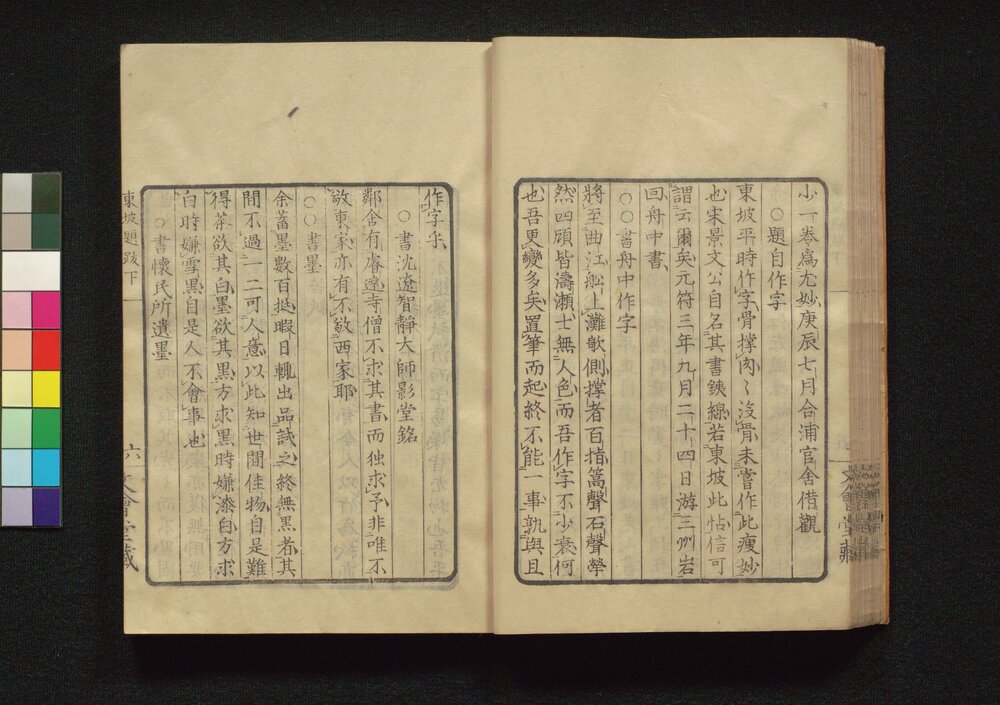 小一卷爲尤妙庚辰七月合浦官舍借觀
○題自作字
東坡平時作字骨撑肉〻沒骨未嘗作此瘦妙
也宋景文公自名其書銕線若東坡此帖信可
謂云爾矣元符三年九月二十四日游三州岩
回舟中書
○○書舟中作字
將至曲江舩上灘欹側撑者百指篙聲石聲犖
然四顧皆濤瀬士無人色而吾作字不少衰何
也吾更變多矣置筆而起終不能一事孰與且
文會堂藏
作字乎
○書沈遼智靜大師影堂銘
鄰舍有睿逹寺僧不求其書而独求予非唯不
敬東家亦有不敬西家耶
○○書墨
余蓄墨數百挺暇日輒出品試之終無黒者其
間不過一二可人意以此知世間佳物自是難
得茶欲其白墨欲其黒方求黒時嫌漆白方求
白時嫌雪黒自是人不會事也
○書懷民所遺墨
東坡題跋下
六
文會堂藏